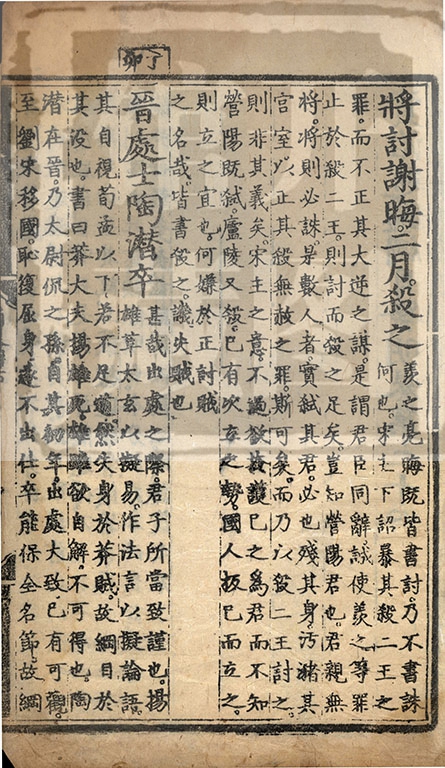 丁卯
將討謝晦二月殺之
羨之亮晦既皆書討乃不書誅
何也宋主下詔暴其殺二王之
罪而不正其大逆之誅是謂君臣同辭誠使羨之等罪
止於殺二王則討而殺之足矣豈知營陽君也君親無
將將則必誅是數人者實弒其君必也殘其身汚瀦其
宮室以正其殺無赦之罪斯可矣而乃以殺二王討之
則非其義矣宋主之意不過欲護已之為君而不知
營陽既弒廬陵又殺已有次立之勢國人扳已而立之
則立之宜也何嫌於正討賊
之名哉皆書殺之譏失賊也
晉處士陶潛卒
甚哉出處之際君子所當致謹也揚
雄草太玄以擬易作法言以擬論語
其自視荀孟以下若不足道然失身於莽賊故綱目於
其没也書曰莽大夫揚雄死雄雖欲自解不可得也陶
潛在晉乃太尉侃之孫自其初年出處大致已有可觀
至劉宋移國恥復屈身遂不出仕卒能保全名節故綱